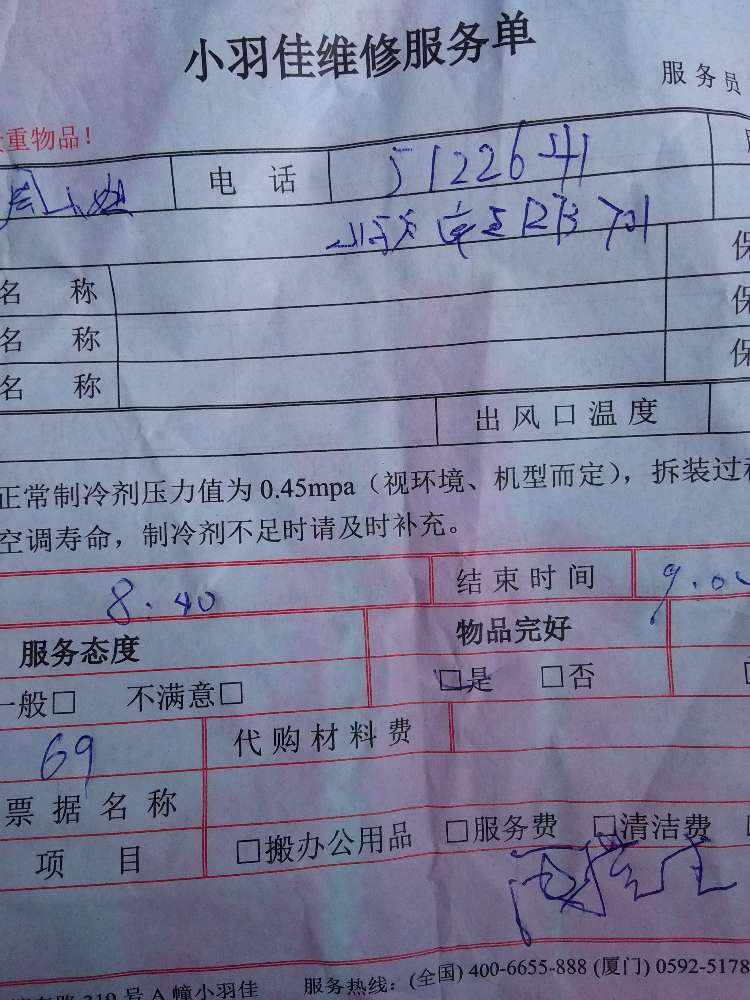 小羽佳维修服务单
服务员
重物品！
电话 5122641
名称 保
名称 保
名称 保
出风口温度
正常制冷剂压力值为0.45mpa（视环境、机型而定），拆装过
空调寿命，制冷剂不足时请及时补充。
8.40 结束时间 9.00
服务态度 物品完好
一般□ 不满意□ □是 □否
69 代购材料费
票据名称
项目 □搬办公用品 □服务费 □清洁费
319号A幢小羽佳 服务热线：(全国) 400-6655-888 (厦门) 0592-5178